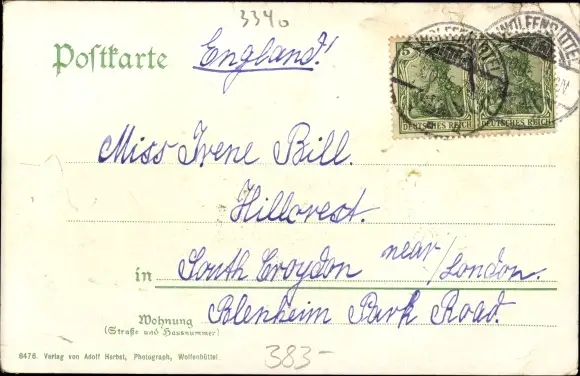 3340
Postkarte England!
5
DEUTSCHES REICH DEUTSCHES REICH
WOLFENBÜTTEL WOLFENBÜTTEL
Miss Irene Bill.
Hillcrest.
in South Croydon near/London.
Wohnung Blenheim Park Road.
(Straße und Hausnummer)
6476. Verlag von Adolf Herbst, Photograph, Wolfenbüttel.
383-